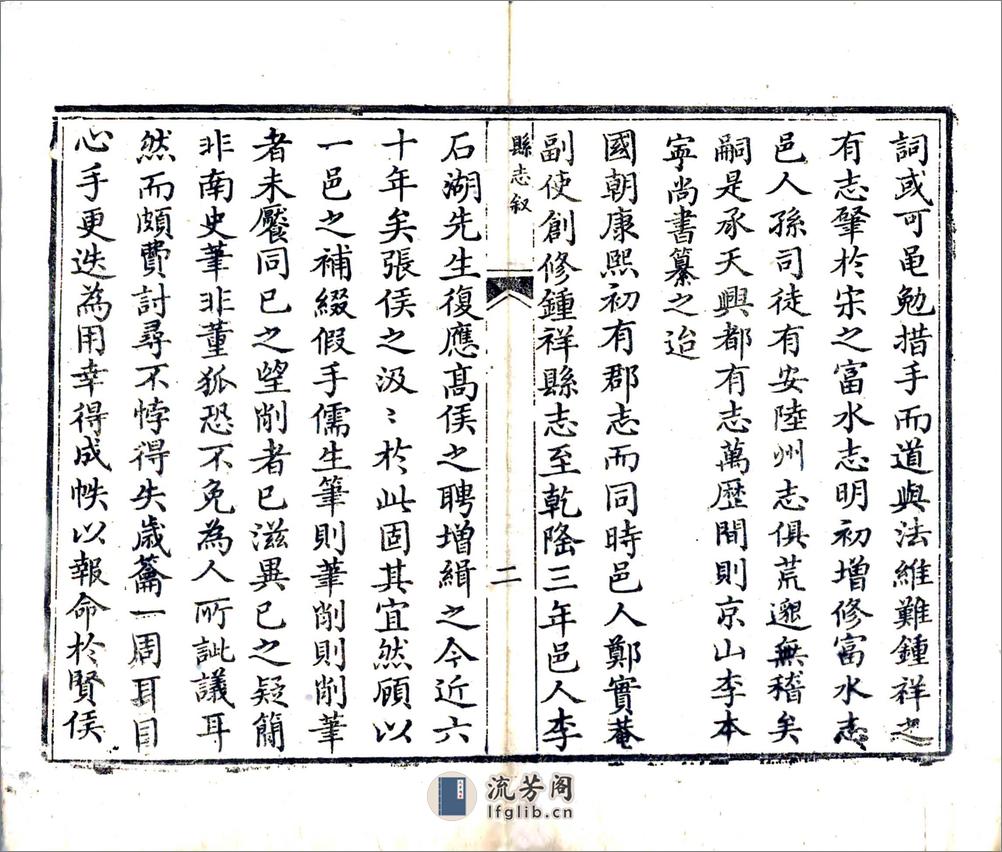 詞或可黽勉措手而道與法維難鍾祥之
有志肇於宋之富水志明初增修富水志
邑人孫司徒有安陸州志俱荒邈無稽矣
嗣是承天興都有志萬歷間則京山李本
寧尚書纂之迨
國朝康熙初有郡志而同時邑人鄭實菴
副使創修鍾祥縣志至乾隆三年邑人李
縣志叙
二
石湖先生復應高侯之聘增緝之今近六
十年矣張侯之汲〻於此固其宜然顧以
一邑之補綴假手儒生筆則筆削則削筆
者未饜同已之望削者已滋異已之疑簡
非南史筆非董狐恐不免為人所訿議耳
然而頗費討尋不悖得失歲籥一周耳目
心手更迭為用幸得成帙以報命於賢侯
流芳阁
lfglib.cn